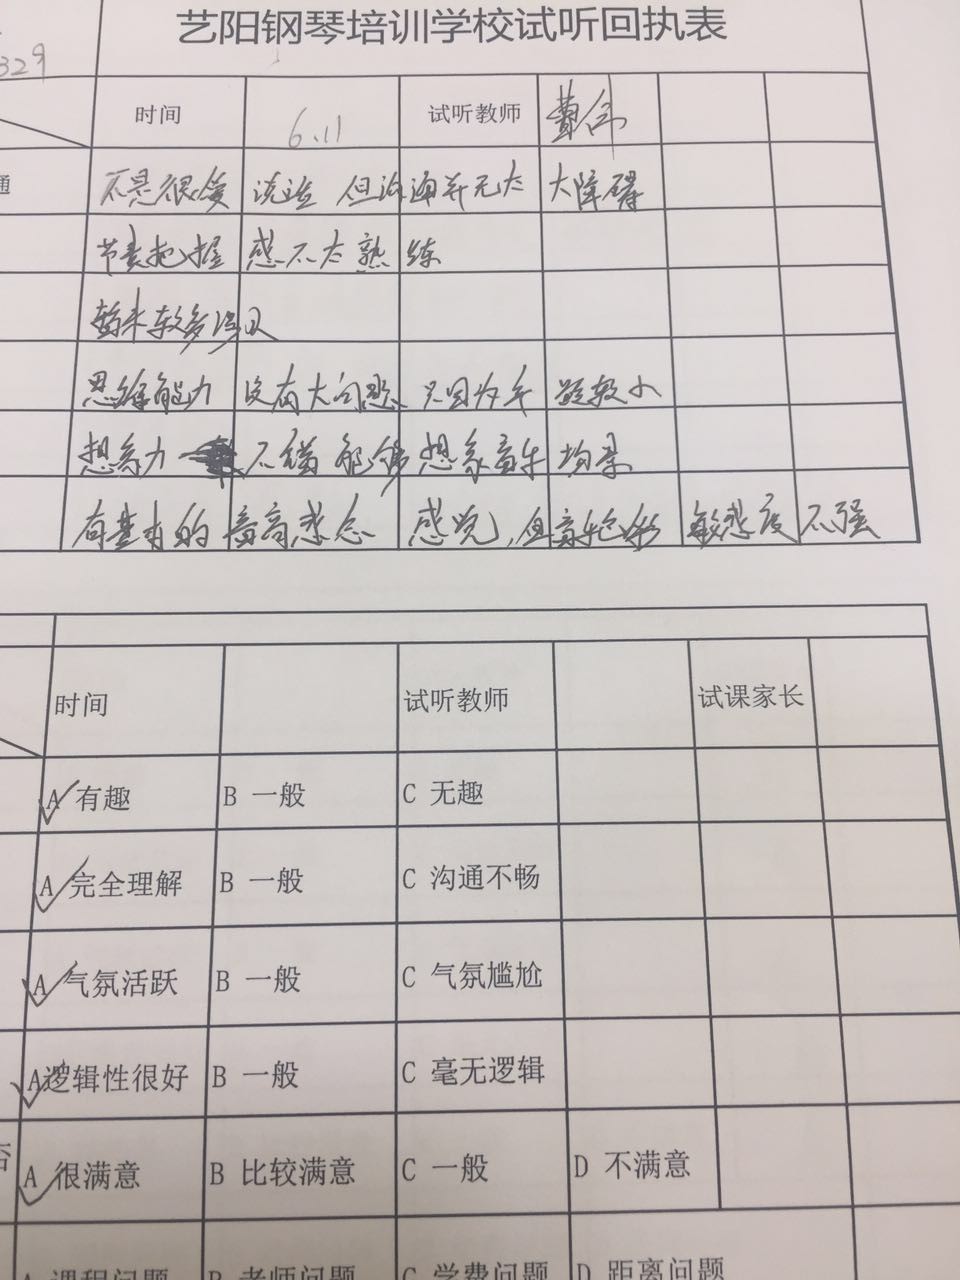 艺阳钢琴培训学校试听回执表
329
时间 6.11 试听教师 费
通 不是很爱说话 但沟通并无太大障碍
节奏把握感不太熟练
思维能力没有大问题 只因为年龄较小
想象力 不错 能够想象音乐场景
有基本的音高悲念 感觉,但音 敏感度不强
时间 试听教师 试课家长
A 有趣 B 一般 C 无趣
A 完全理解 B 一般 C 沟通不畅
A 气氛活跃 B 一般 C 气氛尴尬
A逻辑性很好 B 一般 C 毫无逻辑
否 A 很满意 B 比较满意 C 一般 D 不满意
A 课程问题 B 老师问题 C 学费问题 D 距离问题